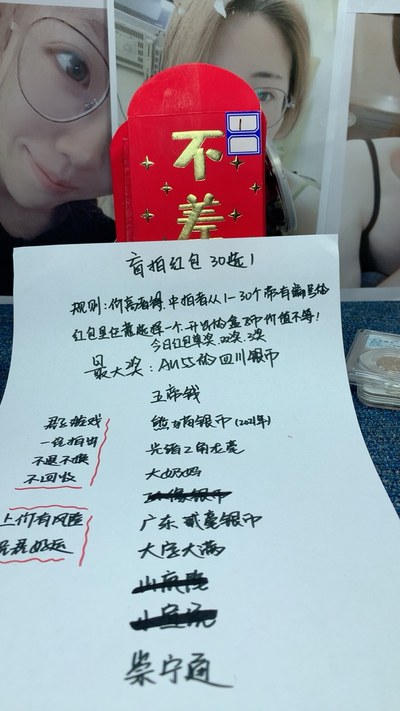 1
不差
盲拍红包 30选1
规则:价高者得,中拍者从1-30个带有编号的
红包里任意选择一个,开出的盒子币价值不等!
今日红包单奖,双奖,3奖
最大奖:AU55的四川银币
五帝钱
熊猫银币(2021年)
光绪二角龙毫
大奶妈
广东贰毫银币
大定大满
崇宁通
游戏
一经拍出
不退不换
不回收
上价有风险
好运